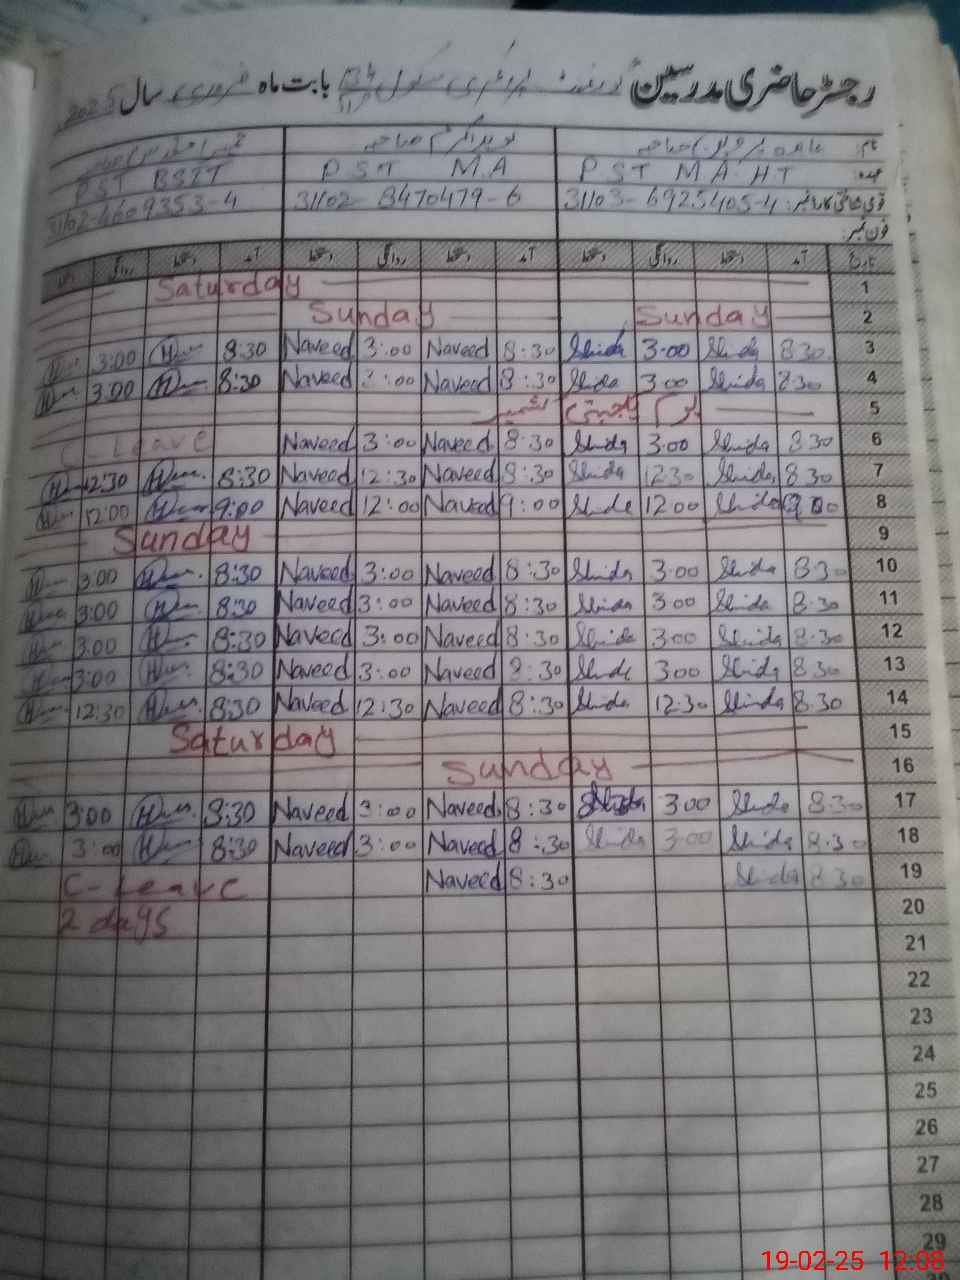 رجسٹر حاضری مدرسین گورنمنٹ پرائمری سکول بابت ماہ فروری سال 2025
نام: صاحبہ نوید اکرم صاحبہ
عہدہ: PST MA HT PST M.A PST BSIT
قومی شناختی کارڈ نمبر: 31103-6925405-4 31102-8470479-6 31102-4609353-4
فون نمبر:
تاریخ آمد دستخط روانگی دستخط آمد دستخط روانگی دستخط آمد دستخط روانگی
1 Saturday
2 Sunday Sunday
3 8:30 Shida 3:00 Shida 8:30 Naveed 3:00 Naveed 8:30 3:00
4 8:30 Shida 3:00 Shida 8:30 Naveed 3:00 Naveed 8:30 3:00
5 یوم یکجہتی کشمیر
6 8:30 Shida 3:00 Shida 8:30 Naveed 3:00 Naveed C-Leave
7 8:30 Shida 12:30 Shida 8:30 Naveed 12:30 Naveed 8:30 12:30
8 9:00 Shida 12:00 Shida 9:00 Naveed 12:00 Naveed 9:00 12:00
9 Sunday
10 8:30 Shida 3:00 Shida 8:30 Naveed 3:00 Naveed 8:30 3:00
11 8:30 Shida 3:00 Shida 8:30 Naveed 3:00 Naveed 8:30 3:00
12 8:30 Shida 3:00 Shida 8:30 Naveed 3:00 Naveed 8:30 3:00
13 8:30 Shida 3:00 Shida 8:30 Naveed 3:00 Naveed 8:30 3:00
14 8:30 Shida 12:30 Shida 8:30 Naveed 12:30 Naveed 8:30 12:30
15 Saturday
16 Sunday
17 8:30 Shida 3:00 Shida 8:30 Naveed 3:00 Naveed 8:30 3:00
18 8:30 Shida 3:00 Shida 8:30 Naveed 3:00 Naveed 8:30 3:00
19 8:30 Shida 8:30 Naveed C-Leave
20 2 days
21
22
23
24
25
26
27
28
29
19-02-25 12:08